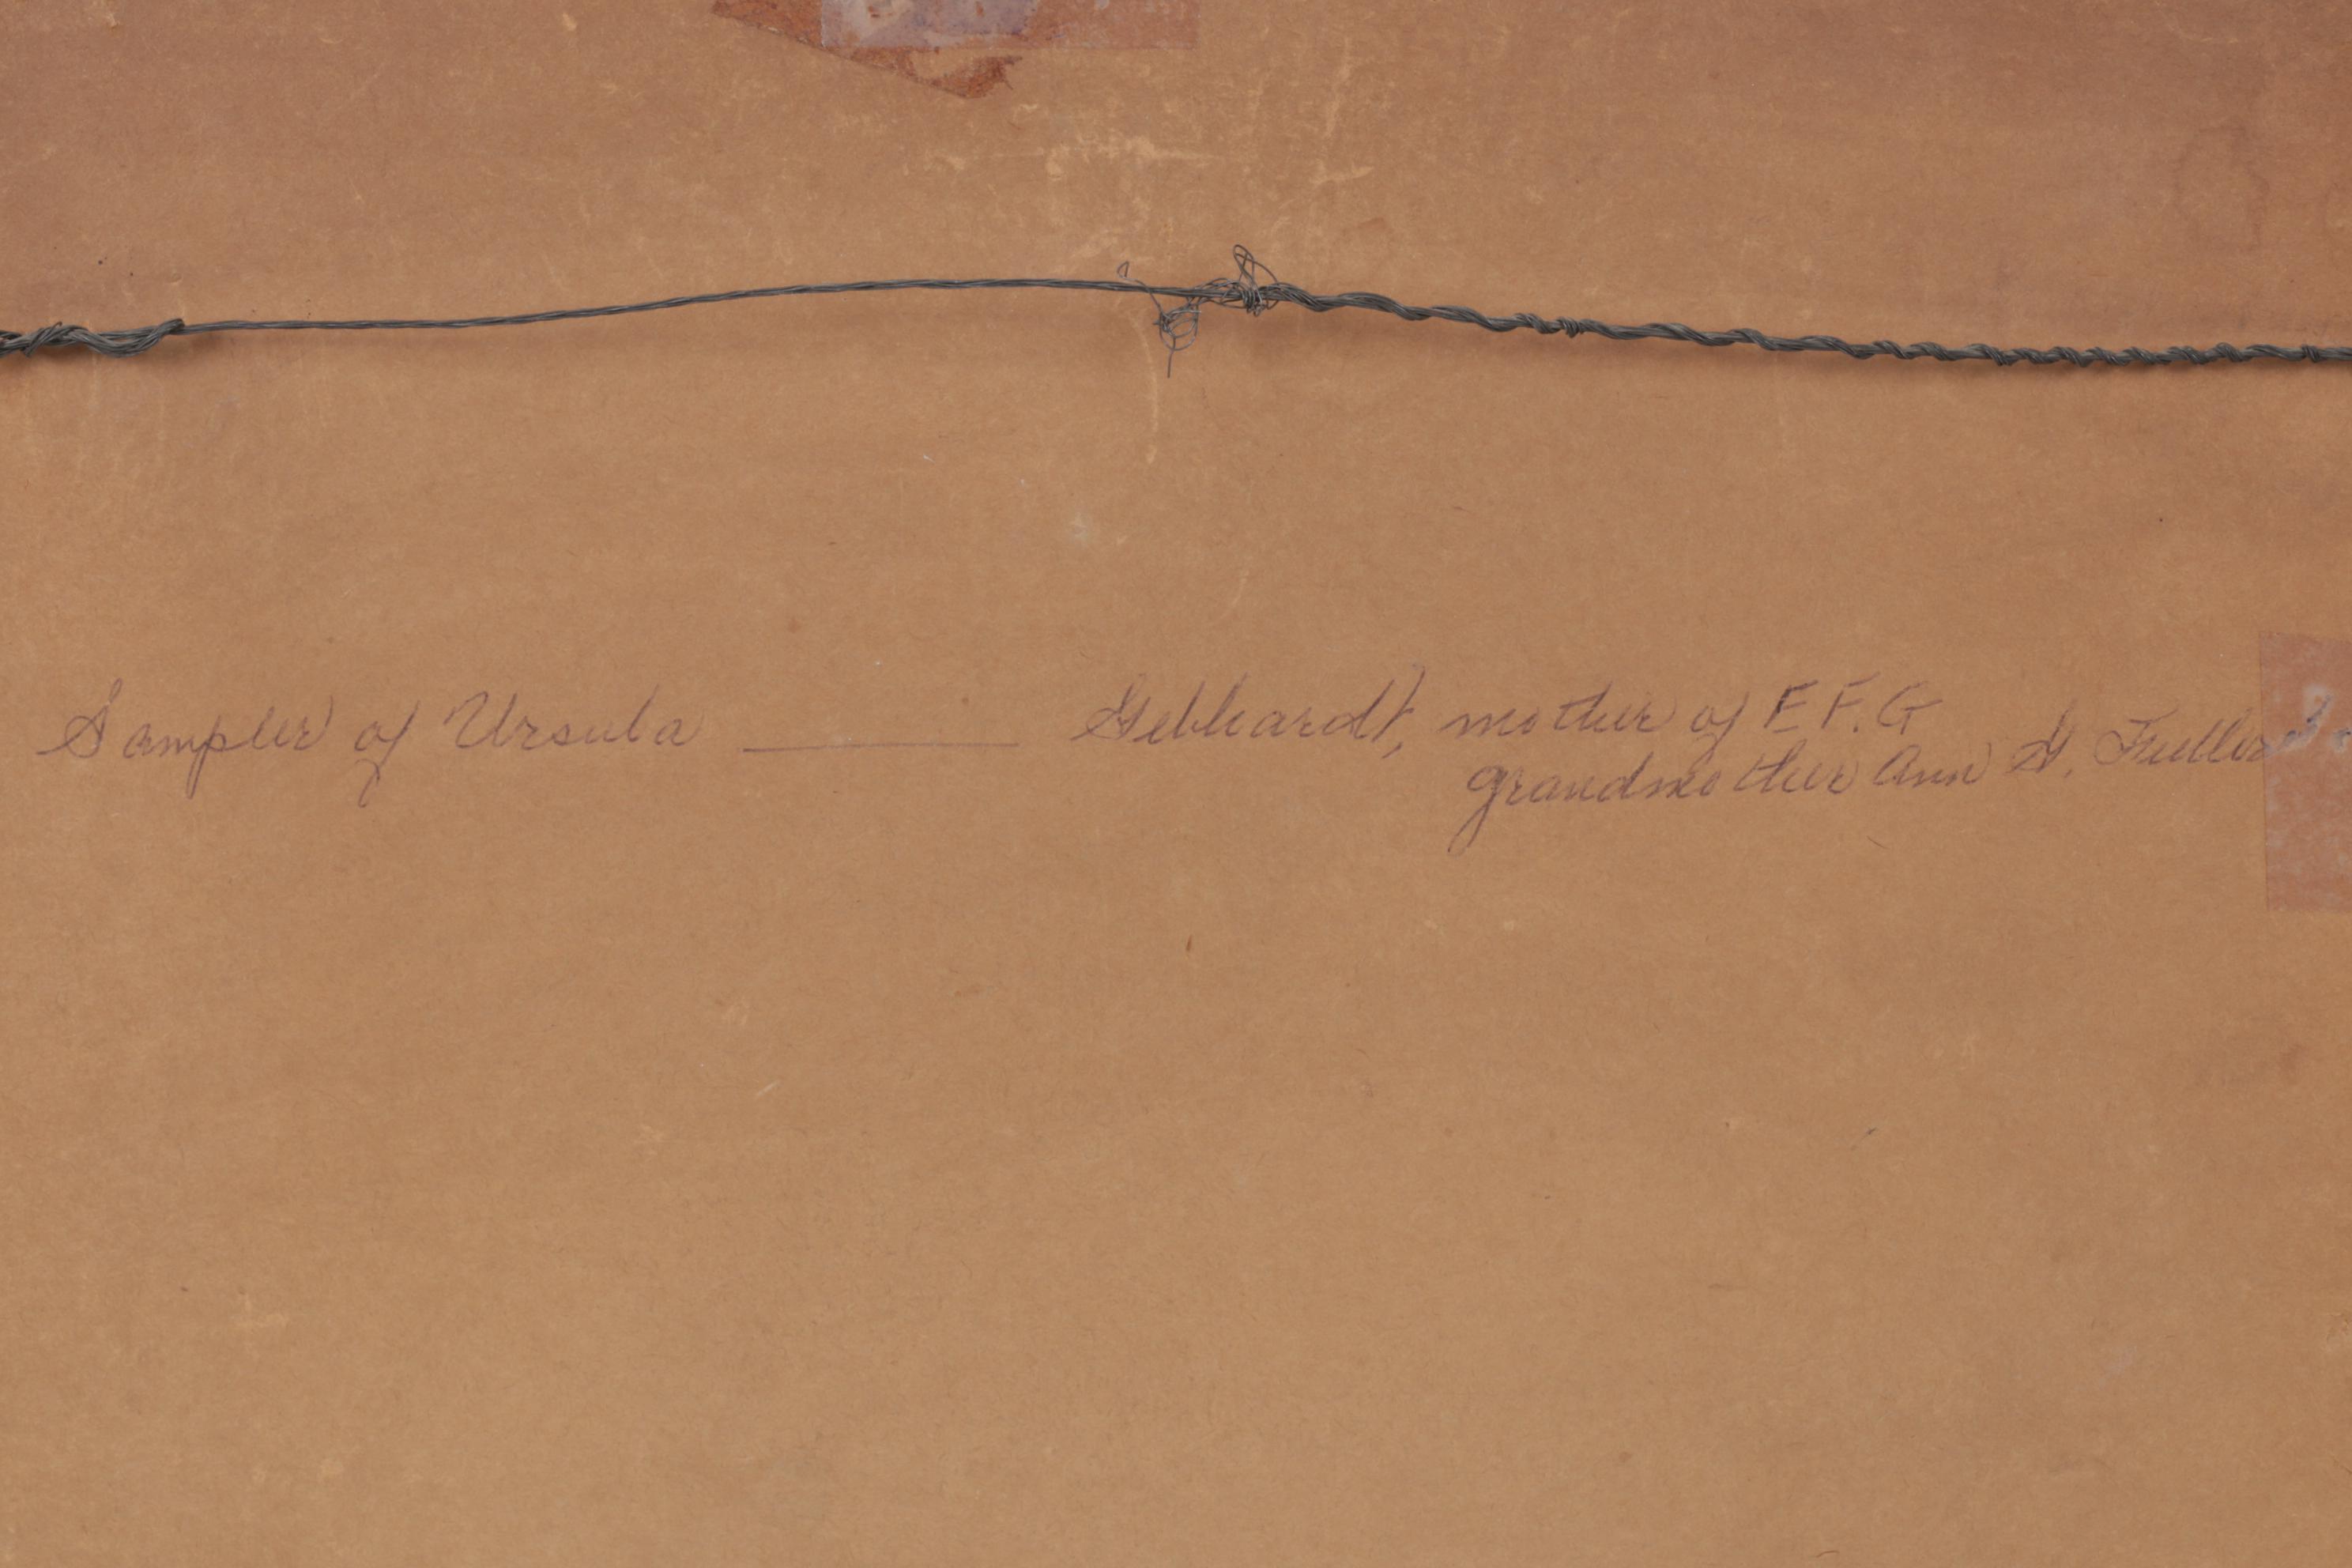 Sampler of Ursula ______ Gebhardt, mother of E F. G
grandmother Ann G. Fuller